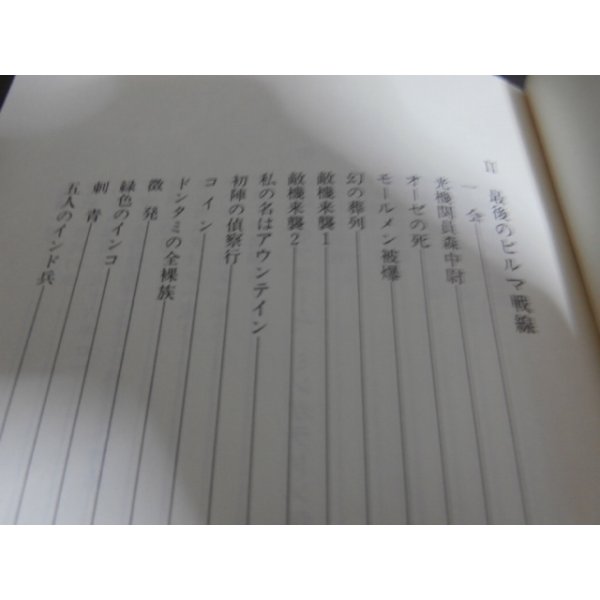 II 最後のビルマ戦線
一会
光機関員森中尉
オーゼの死
モールメン被爆
幻の葬列
敵機来襲1
敵機来襲2
私の名はアウンテイン
初陣の偵察行
コイン
ドンタミの全裸族
徴発
緑色のインコ
刺青
五人のインド兵